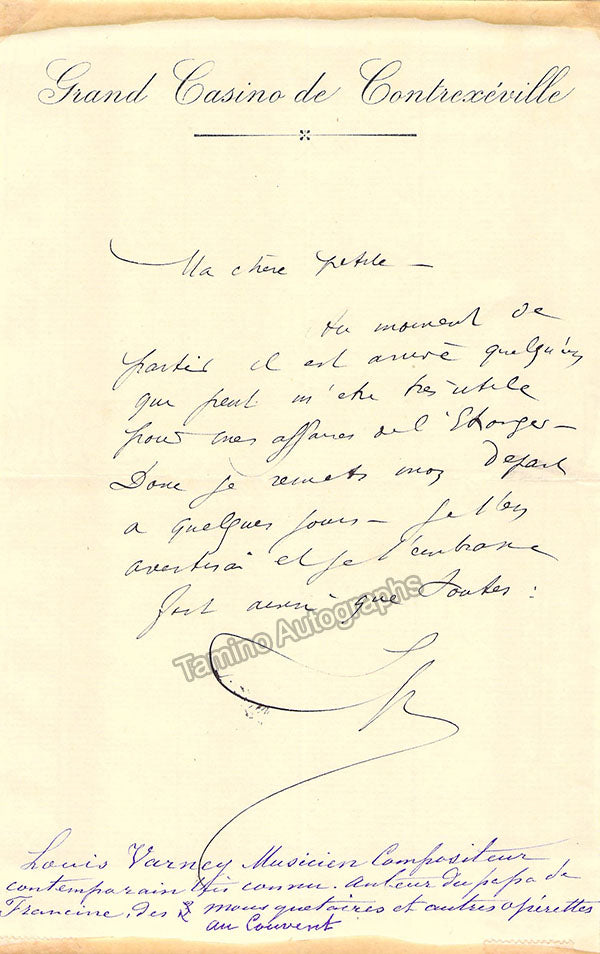 Grand Casino de Contrexéville
Ma chère petite —
Au moment de
partir il est arrivé quelqu'un
qui peut m'être très utile
pour mes affaires de l'Etranger —
Donc je remets mon départ
a quelques jours — Je t'en
avertirai et je t'embrasse
fort ainsi que toutes :
Tamino Autographs
Louis Varney Musicien Compositeur
contemporain très connu. auteur du papa de
Francine, des mousquetaires et autres opérettes
au Couvent